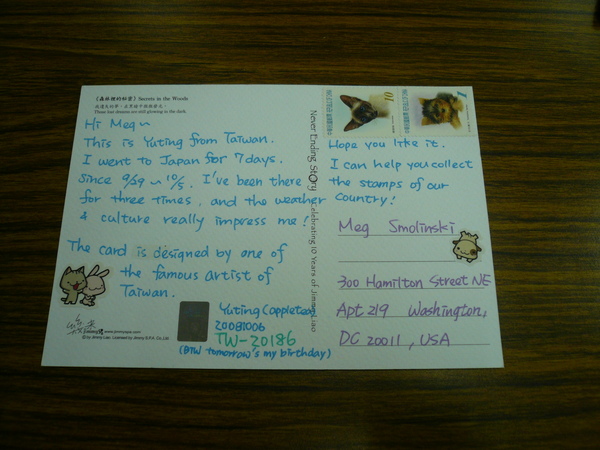 《森林裡的秘密》Secrets in the Woods
Those lost dreams are still glowing in the dark.
Hi Meg~
This is Yuting from Taiwan.
I went to Japan for 7 days.
Since 9/29 ~ 10/5. I've been there
for three times, and the weather
& culture really impress me!
The card is designed by one of
the famous artist of
Taiwan.
Yuting (appletea)
20081006
TW-20186
(BTW tomorrow's my birthday)
www.jimmyspa.com
©by Jimmy Liao. Licensed by Jimmy S.P.A. Co., Ltd.
Never Ending Story Celebrating 10 Years of Jimmy Liao
10
Hope you like it.
I can help you collect
the stamps of our
country!
Meg Smolinski
300 Hamilton Street NE
Apt 219 Washington,
DC 20011, USA